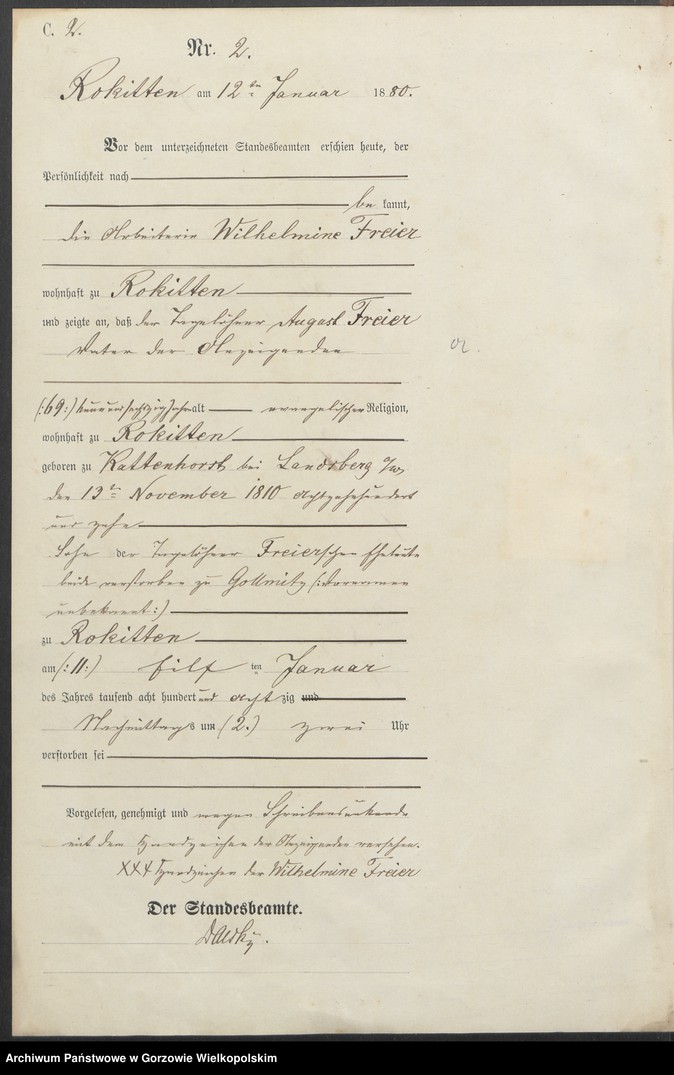 C. 2.
Nr. 2.
Rokitten am 12ten Januar 1880.
Vor dem unterzeichneten Standesbeamten erschien heute, der
Persönlichkeit nach
be kannt,
die Arbeiterin Wilhelmine Freier
wohnhaft zu Rokitten
und zeigte an, daß der Tagelöhner August Freier
Vater der Anzeigenden
(:69:) neunundsechszig Jahr alt evangelischer Religion,
wohnhaft zu Rokitten
geboren zu Kattenhorst bei Landsberg a/w
den 13ten November 1810 achtzehnhundert
und zehn
Sohn der Tagelöhner Freierschen Eheleute
beide verstorben zu Gollmitz (:Vornamen
unbekannt:)
zu Rokitten
am (:11:) Eilf ten Januar
des Jahres tausend acht hundert und acht zig und
Nachmittags um (2.) zwei Uhr
verstorben sei
Vorgelesen, genehmigt und wegen Schreibensunkunde
mit dem Handzeichen der Anzeigenden versehen.
XXX Handzeichen der Wilhelmine Freier
Der Standesbeamte.
Archiwum Państwowe w Gorzowie Wielkopolskim